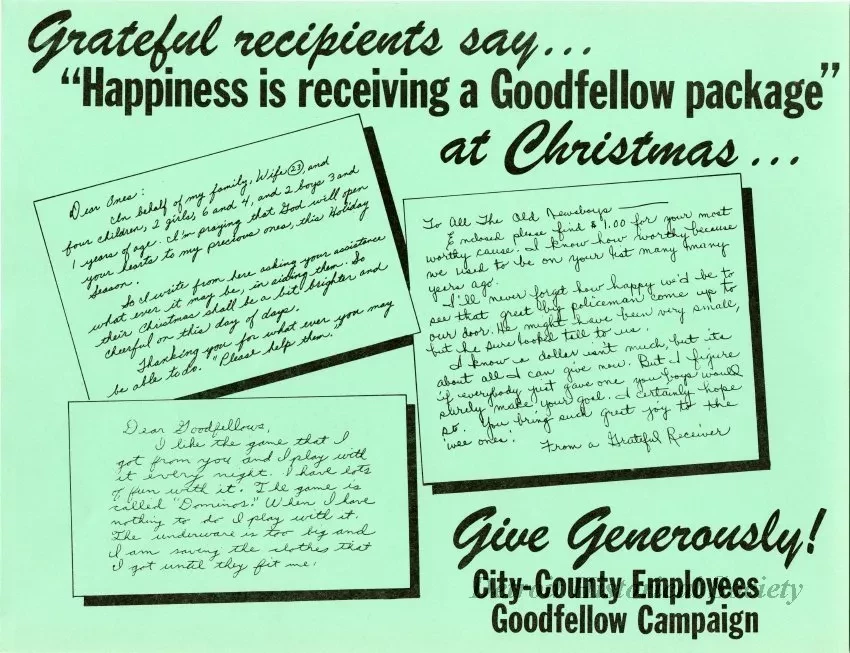 Grateful recipients say...
"Happiness is receiving a Goodfellow package"
at Christmas...
Dear Ones:
On behalf of my family, Wife 23, and
four children, 2 girls, 6 and 4, and 2 boys 3 and
1 years of age. I'm praying that God will open
your hearts to my precious ones, this Holiday
Season.
So I write from here asking your assistance
what ever it may be, in aiding them. So
their Christmas shall be a bit brighter and
cheerful on this day of days.
Thanking you for what ever you may
be able to do. "Please help them."
To All The Old Newsboys
Enclosed please find $1.00 for your most
worthy cause. I know how worthy because
we used to be on your list many many
years ago.
I'll never forget how happy we'd be to
see that great big policeman come up to
our door. He might have been very small,
but he sure looked tall to us.
I know a dollar isn't much, but its
about all I can give now. But I figure
if everybody just gave one you boys would
surely make your goal. I certainly hope
so. You bring such great joy to the
'wee ones'.
From a Grateful Receiver
Dear Goodfellows,
I like the game that I
got from you and I play with
it every night. I have lots
of fun with it. The game is
called "Dominos." When I have
nothing to do I play with it.
The underware is too big and
I am saving the clothes that
I got until they fit me.
Give Generously!
City-County Employees
Goodfellow Campaign
Detroit Historical Society